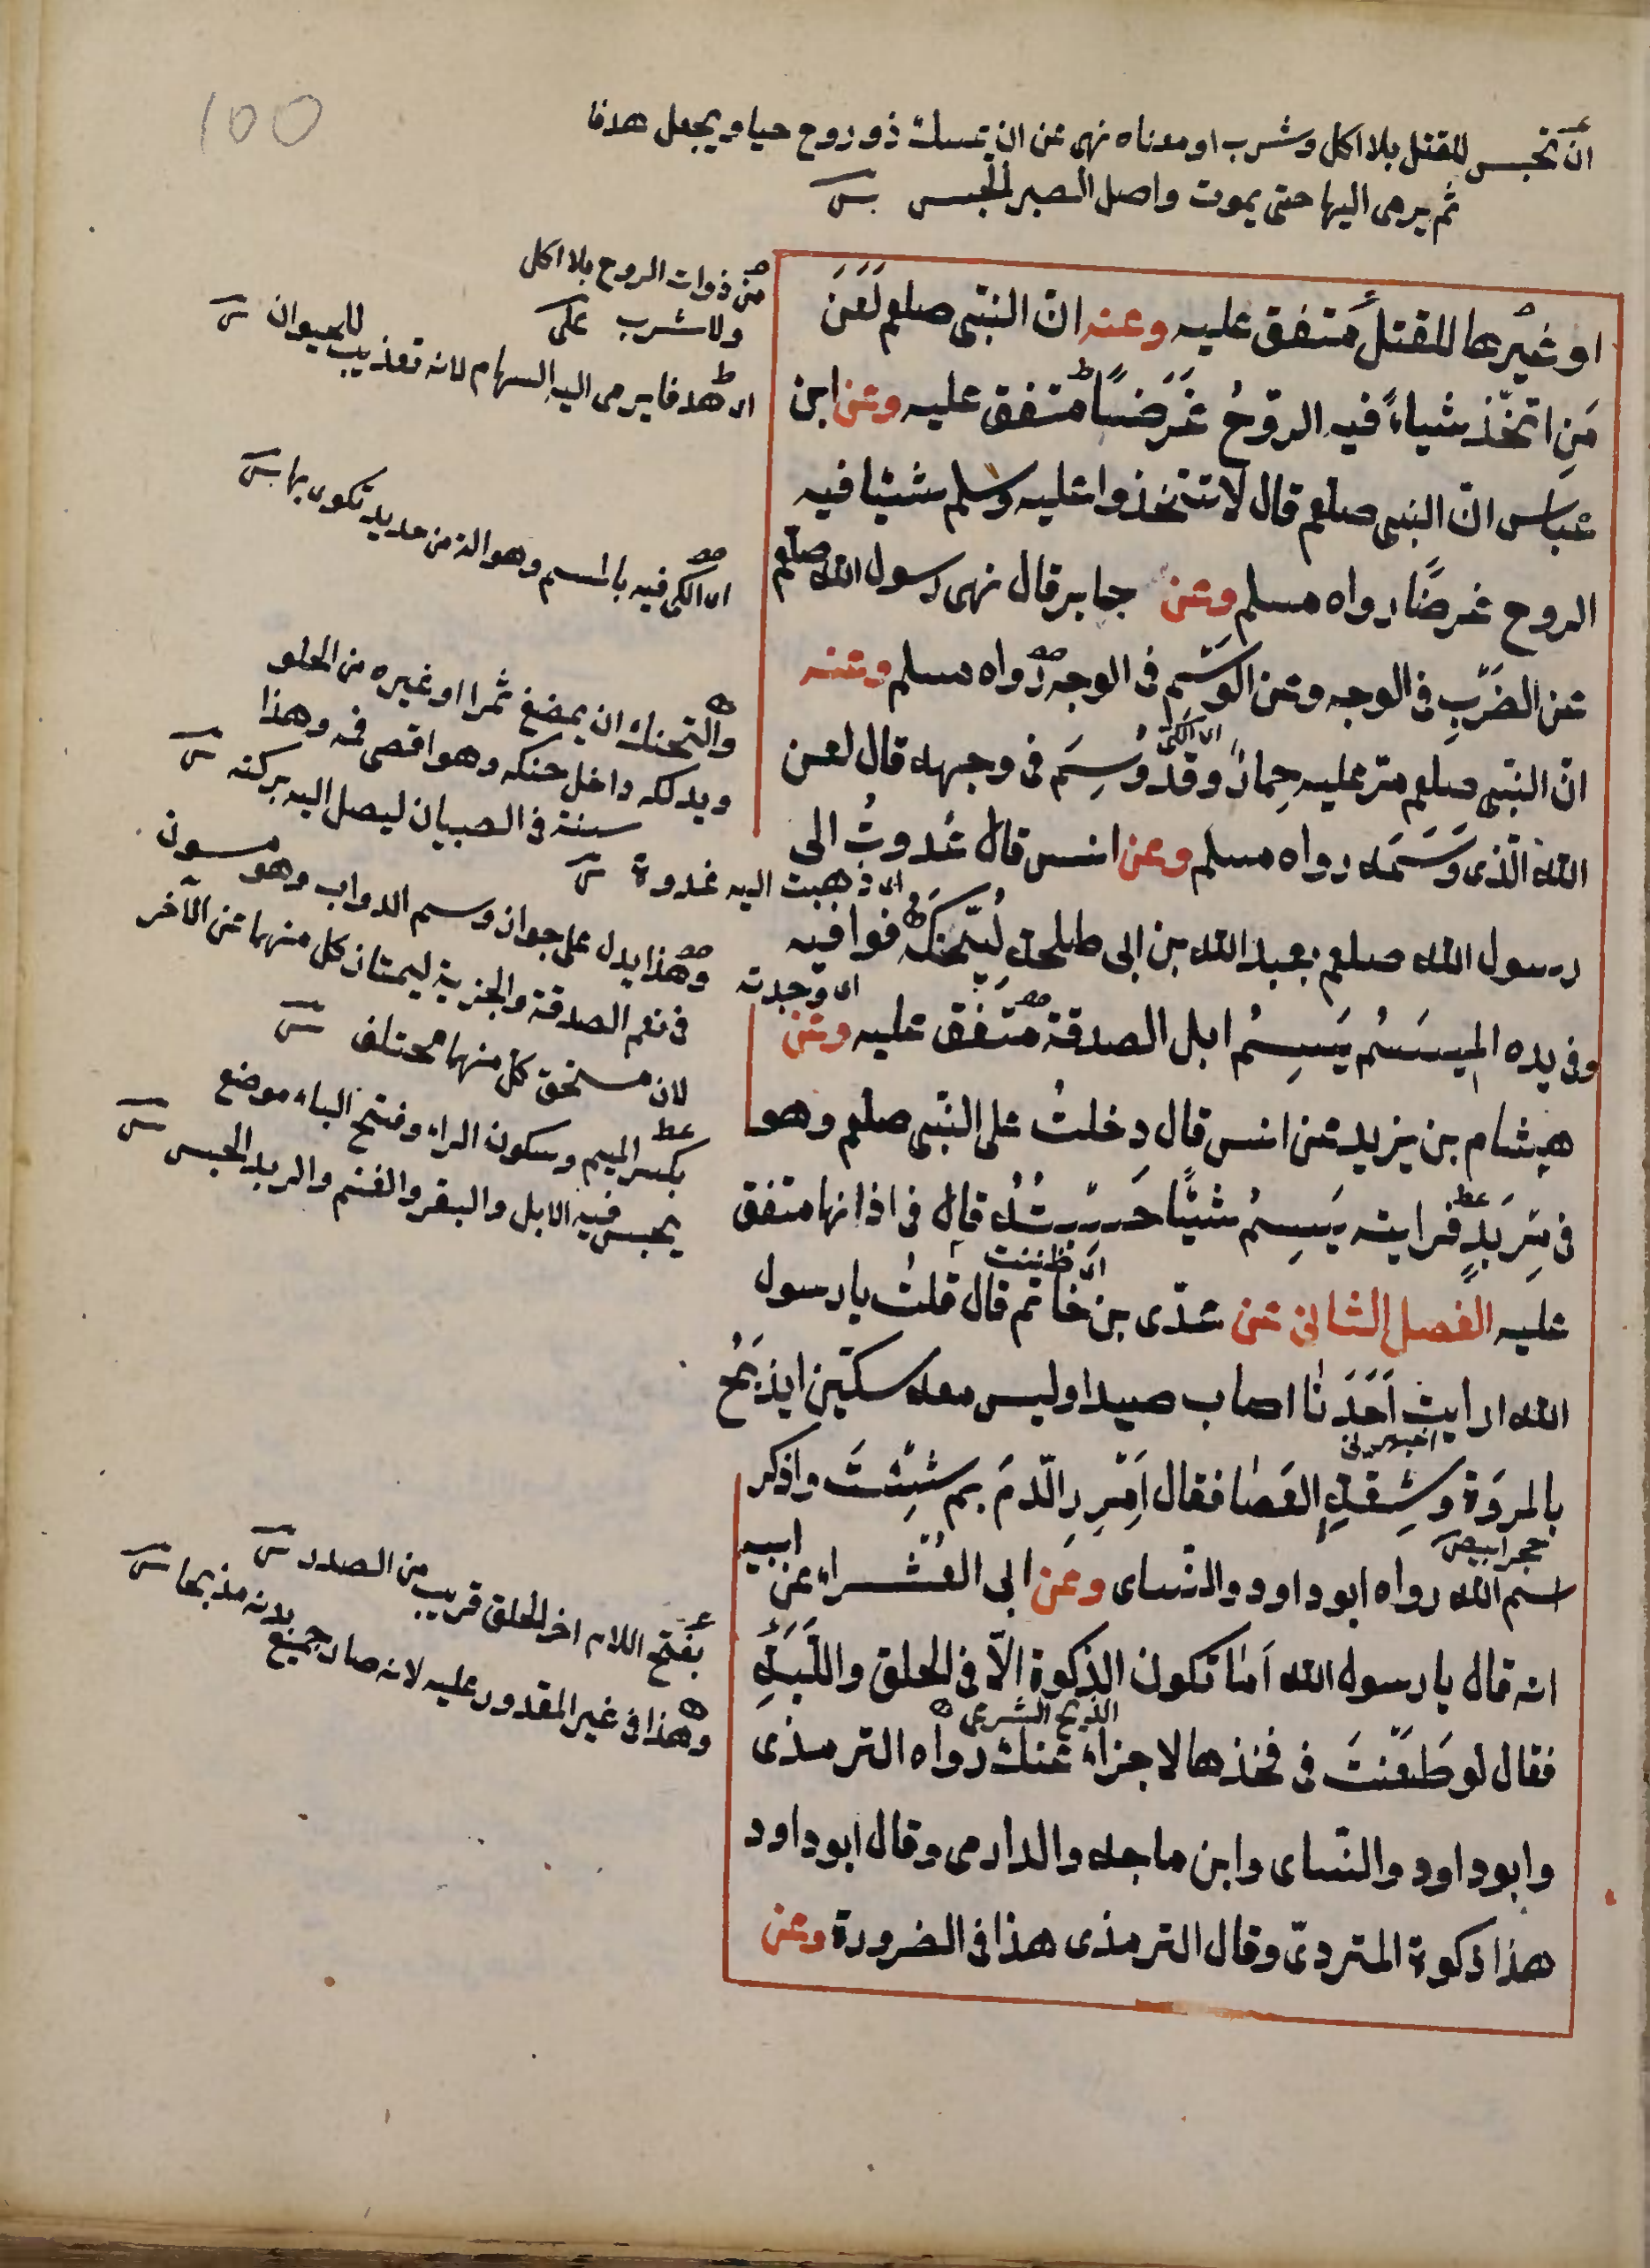 100
ان تحبس للقتل بلا اكل وشرب او معناه نهى عن ان يمسك ذو روح حيا ويجعل هدفا
ثم يرمى اليها حتى يموت واصل الصبر الحبس
او غيرها للقتل متفق عليه وعنه ان النبى صلعم لَعَنَ
مَنِ اتخذ شياءً فيه الروحُ غَرَضًا متفق عليه وعن ابن
عباس ان النبى صلعم قال لا تتخذوا عليه وسلم شيئا فيه
الروح غرضًا رواه مسلم وعن جابر قال نهى رسول الله صلعم
عن الضَرْبِ فى الوجه وعن الوَسْمِ فى الوجه رواه مسلم وعنه
انّ النبّى صلعم مرّ عليه حِمارٌ وقد وُسِمَ فى وجهه قال لعن
اى الكى
الله الّذى وَسَمَه رواه مسلم وعن انس قال غَدوتُ الى
اى ذهبت اليه غدوة
رسول الله صلعم بعبد الله بن ابى طلحة لِيُحَنِّكَه فوافيه
اى وجدته
وفى يده الميسَمُ يَسِمُ ابل الصدقة متفق عليه وعن
هشام بن يزيد عن انس قال دخلتُ على النبّى صلعم وهو
فى مِرْبَدٍ فرايته يَسِمُ شيئًا حَسِبْتُه قال فى اذانها متفق
اى ظننت
عليه الفصل الثانى عن عدّى بن خاتم قال قلتُ يا رسول
الله ارايت اَحَدَنا اصاب صيدا وليس معه سكّين ايذبَحُ
اخبرنى
بالمروَة وشِقةِ العَصا فقال اَمْرِرِ الدّمَ بم شِئْتَ واذكر
حجر ابيض
اسم الله رواه ابو داود والنّساى وعن ابى العُشراء عن ابيه
انه قال يا رسول الله اَمَا تكون الذكوة الاّ فى الحلق واللَّبَةِ
الذبح الشرعى
فقال لو طَعَنْتَ فى فخذها لاجزاء عنك رواه الترمذى
وابو داود والنّساى وابن ماجه والدارمى وقال ابو داود
هذا ذكوة المتردىّ وقال الترمذى هذا فى الضرورة وعن
من ذوات الروح بلا اكل
ولا شرب على
اى هدفا يرمى اليه السهام لانه تعذيب للحيوان
اى الكى فيه بالمسم وهو الة من حديد تكوى بها
والتحنك ان يمضغ ثمرا او غيره من الحلو
ويدلكه داخل حنكه وهو اقصى فمه وهذا
سنة فى الصبيان ليصل اليه بركته
وهذا يدل على جواز وسم الدواب وهو مسنون
فى نعم الصدقة والجزية ليمتاز كل منهما عن الآخر
لان مستحق كل منهما مختلف
بكسر الميم وسكون الراء وفتح الباء موضع
يحبس فيه الابل والبقر والغنم والربد الحبس
بفتح اللام اخر الحلق قريب من الصدر
وهذا فى غير المقدور عليه لانه صار جميع بدنه مذبحا